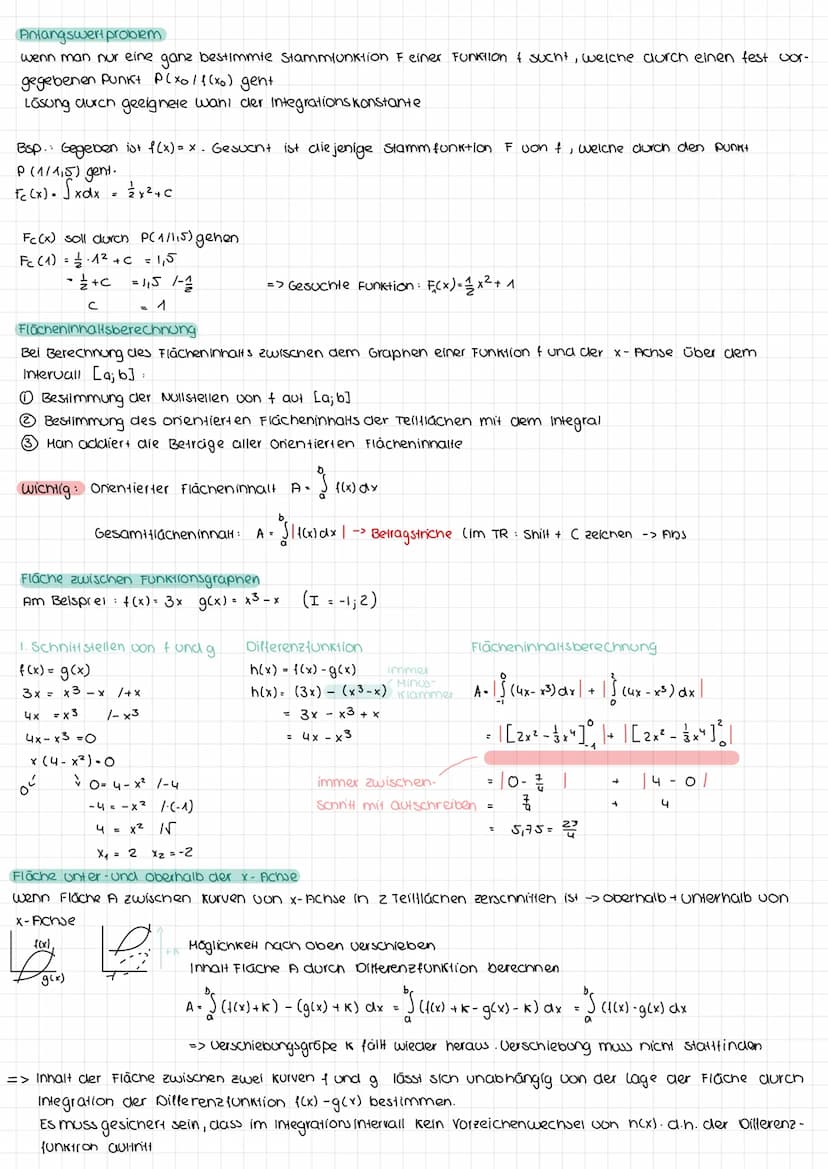 Anfangswertproblem
wenn man nur eine ganz bestimmte Stammfunktion F einer Funktion f sucht, welche durch einen fest vor-
gegebenen Punkt P(x₀/f(x₀) geht
Lösung durch geeignete Wahl der Integrationskonstante
Bsp.: Gegeben ist f(x)= x. Gesucht ist diejenige Stammfunktion F von f, welche durch den Punkt
P (1/1,5) geht.
Fc(x) = ∫xdx = ½x²+c
Fc(x) soll durch P(1/1,5) gehen
Fc(1) = ½·1² +c = 1,5
= ½+c = 1,5 /-½ => Gesuchte Funktion: F₁(x)=½x²+ 1
c = 1
Flächeninhaltsberechnung
Bei Berechnung des Flächeninhalts zwischen dem Graphen einer Funktion f und der x-Achse über dem
Intervall [a;b]:
① Bestimmung der Nullstellen von f auf [a;b]
② Bestimmung des orientierten Flächeninhalts der Teilflächen mit dem Integral
③ Man addiert die Beträge aller orientierten Flächeninhalte
Wichtig: Orientierter Flächeninhalt A = ᵇ∫ₐ f(x)dx
Gesamtflächeninhalt: A = ᵇ∫ₐ|f(x)dx| -> Betragstriche (im TR: Shift + C zeichen -> Abs
Fläche zwischen Funktionsgraphen
Am Beispiel: f(x)= 3x g(x)= x³-x (I = -1;2)
1. Schnittstellen von f und g Differenzfunktion Flächeninhaltsberechnung
f(x)= g(x) h(x) = f(x)-g(x) immer
3x = x³-x /+x h(x)= (3x) - (x³-x) Minus-klammer A = |⁰∫₋₁(4x-x³)dx| + |²∫₀(4x-x³)dx|
4x = x³ /-x³ = 3x - x³ + x
4x-x³ =0 = 4x - x³ = |[2x²-⅓x⁴]⁰₋₁| + |[2x²-⅓x⁴]²₀|
x(4-x²)=0
0 0= 4-x² /-4 immer zwischen- = |0-7/4| + |4-0|
-4 = -x² /·(-1) schritt mit aufschreiben = 7/4 + 4
4 = x² /√ = 5,75 = 23/4
x₁ = 2 x₂ = -2
Fläche unter- und oberhalb der x-Achse
wenn Fläche A zwischen Kurven von x-Achse in 2 Teilflächen zerschnitten ist -> oberhalb + unterhalb von
x-Achse
f(x) g(x) +k Möglichkeit nach oben verschieben
Inhalt Fläche A durch Differenzfunktion berechnen
A = ᵇ∫ₐ(f(x)+k) - (g(x)+k) dx = ᵇ∫ₐ(f(x)+k-g(x)-k) dx = ᵇ∫ₐ(f(x)-g(x) dx
=> Verschiebungsgröße k fällt wieder heraus. Verschiebung muss nicht stattfinden
=> Inhalt der Fläche zwischen zwei Kurven f und g lässt sich unabhängig von der Lage der Fläche durch
Integration der Differenzfunktion f(x)-g(x) bestimmen.
Es muss gesichert sein, dass im Integrationsintervall kein Vorzeichenwechsel von h(x). d.h. der Differenz-
funktion auftritt